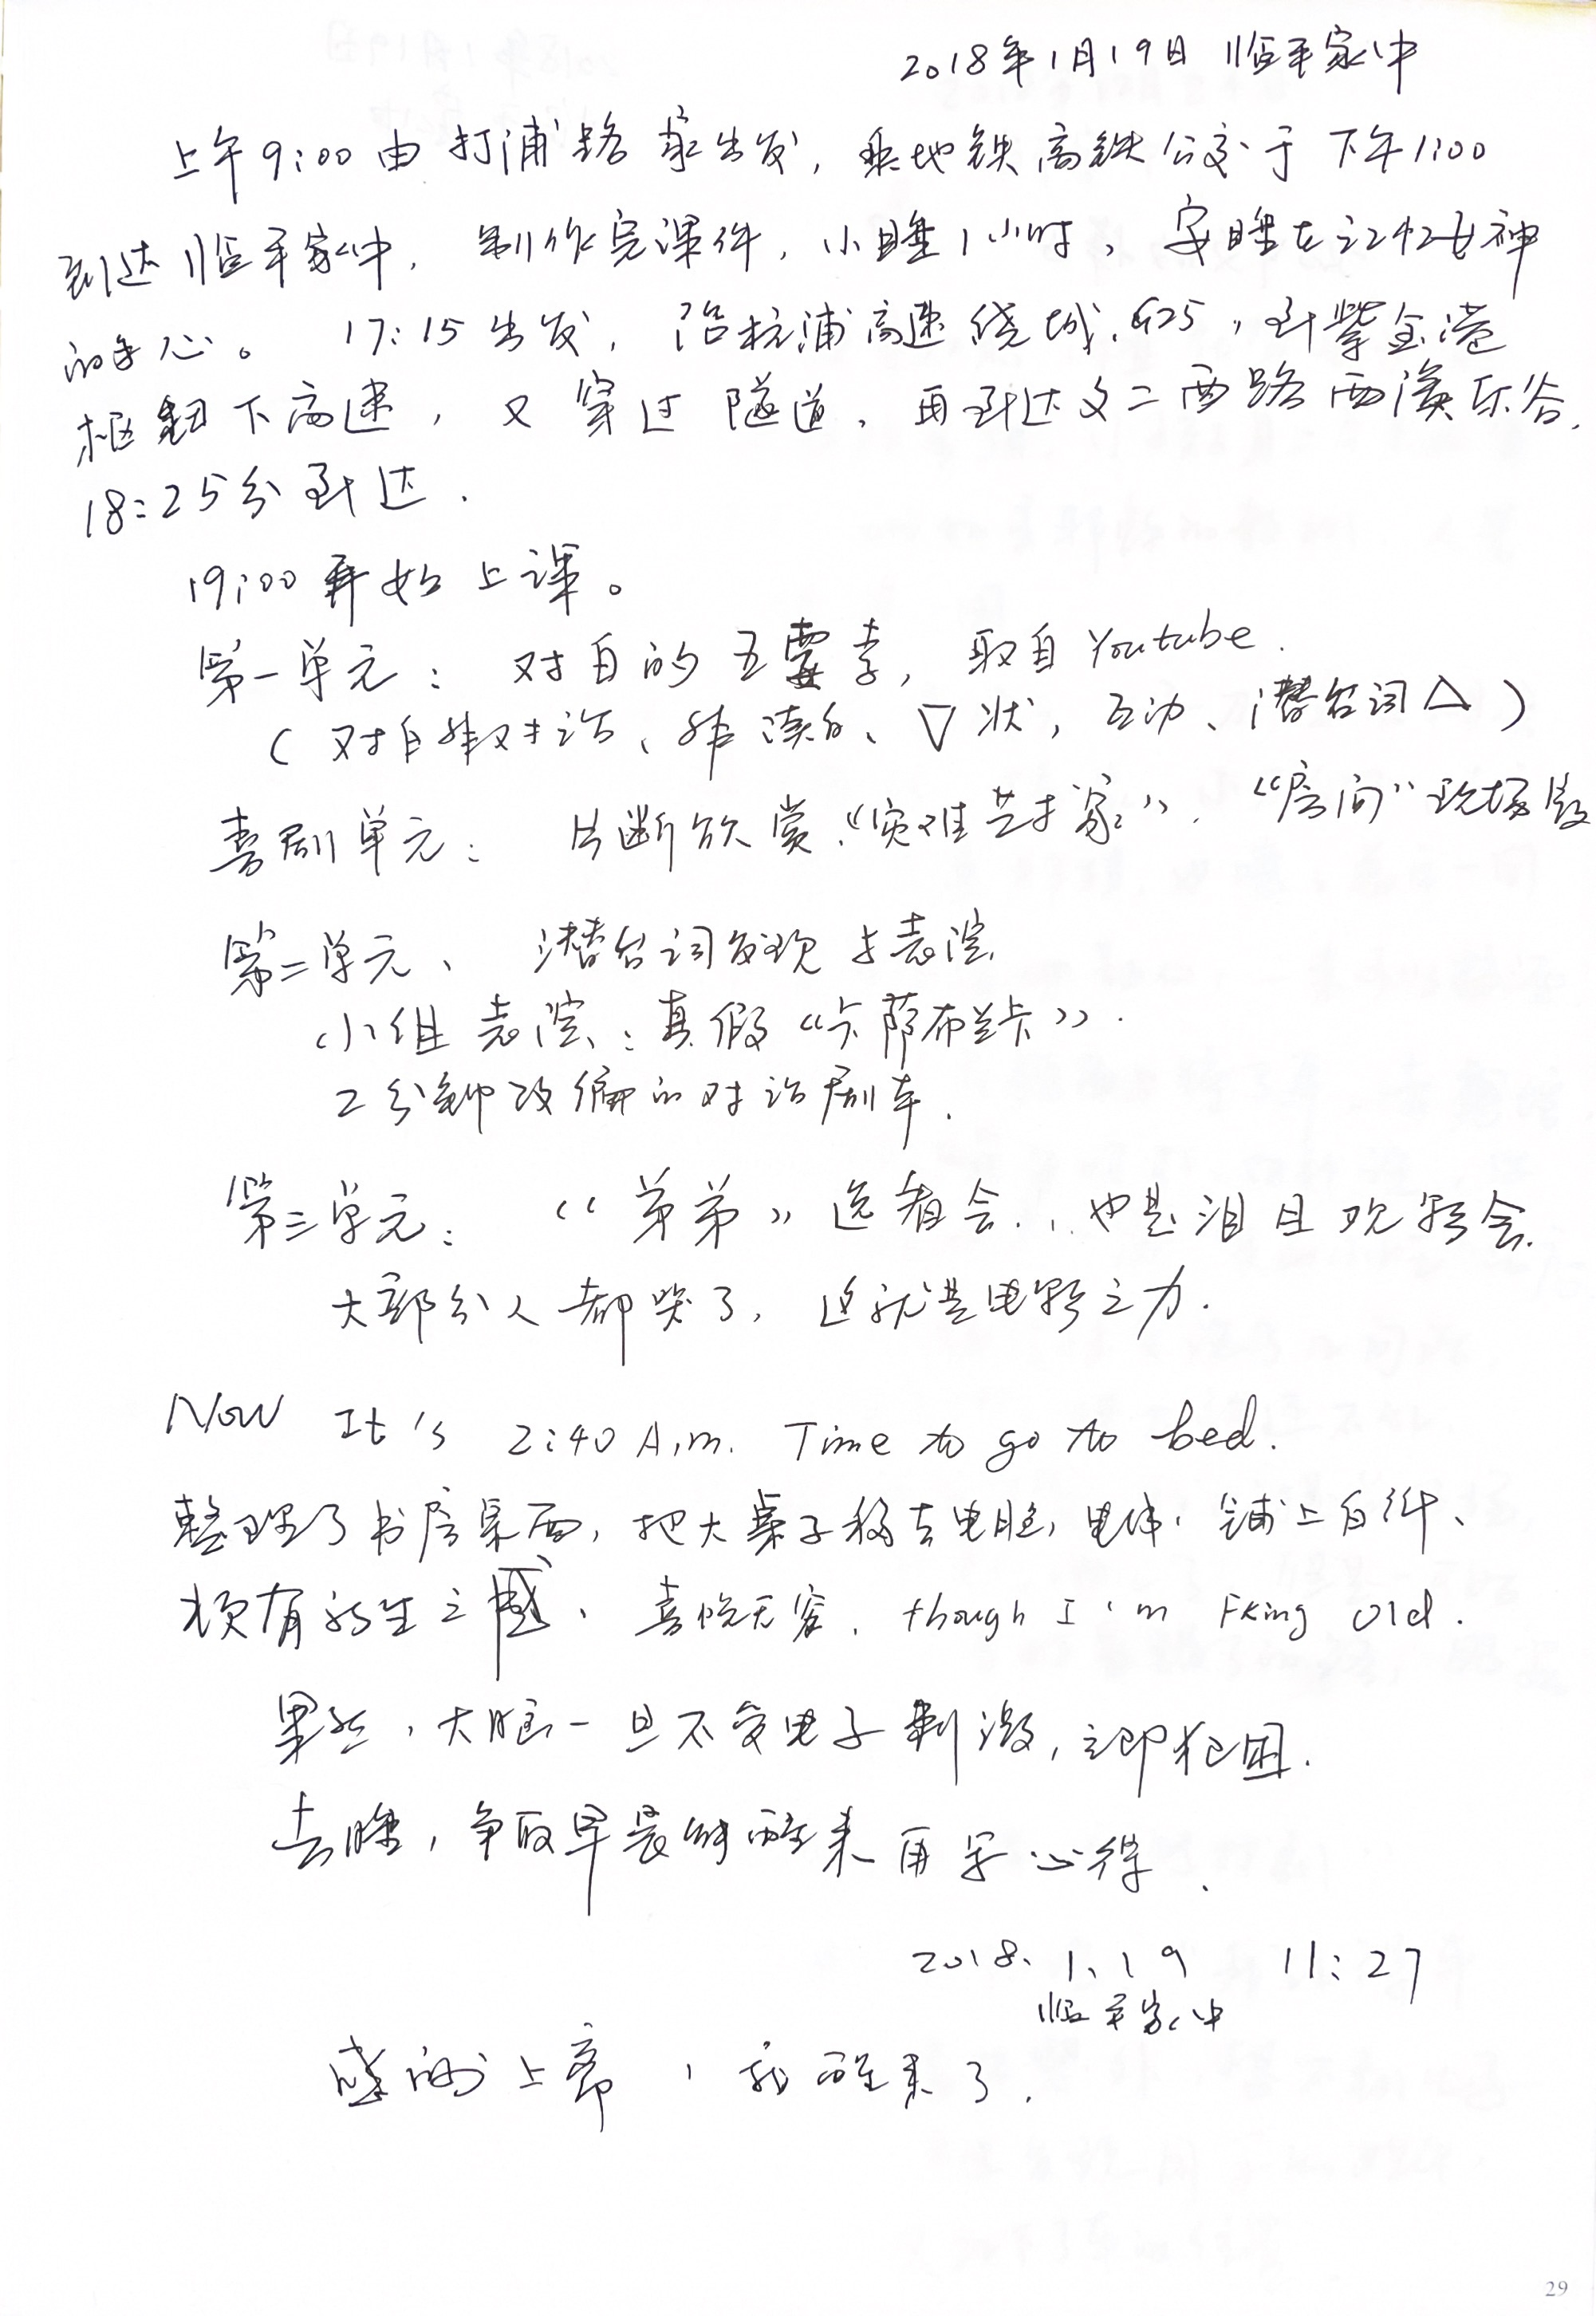 2018年1月19日 临平家中
上午9:00由打浦路家出发，乘地铁高铁公交于下午1:00
到达临平家中，制作完课件，小睡1小时，安睡在女神
的手心。 17:15出发，沿杭浦高速绕城，G25，到紫金港
枢纽下高速，又穿过隧道，再到达文二西路西溪乐谷，
18:25分到达．
19:00开始上课。
第一单元：对白的五要素，取自Youtube．
（对白非对话、非读白、▽状，互动、潜台词△）
喜剧单元：片断欣赏《灾难艺术家》．“房间”现场版
第二单元、潜台词发现与表演
小组表演：真假《卡萨布兰卡》．
2分钟改编的对话剧本．
第三单元：《弟弟》选看会．，也是泪目观影会．
大部分人都哭了，这就是电影之力．
Now It's 2:40 A.m. Time to go to bed.
整理了书房桌面，把大桌子移去电脑，电体，铺上白纸、
颇有新生之感、喜悦无穷．though I'm Fking old．
果然，大脑一旦不受电子刺激，立即犯困．
去睡，争取早晨能醒来再写心得．
2018、1、19 11:27
临平家中
感谢上帝，我醒来了．
29